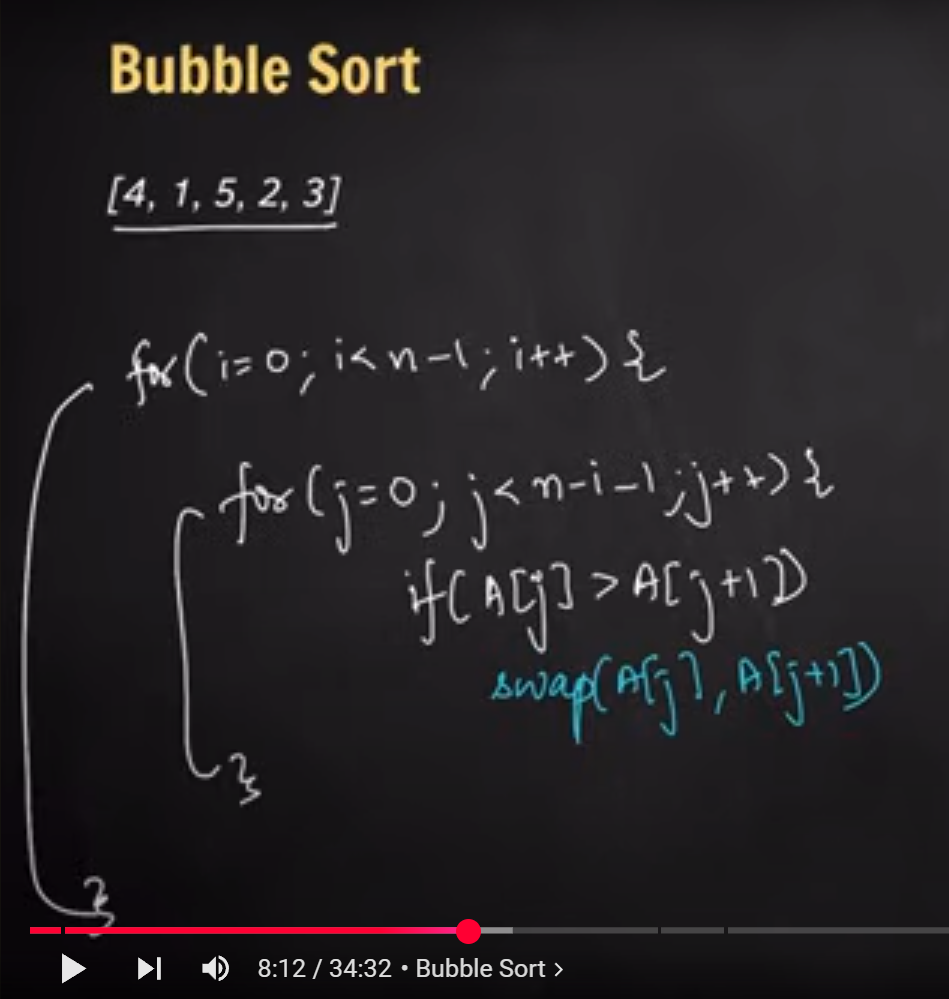 Bubble Sort
[4, 1, 5, 2, 3]
for(i=0; i<n-1; i++){
for(j=0; j<n-i-1; j++){
if(A[j]>A[j+1])
swap(A[j], A[j+1])
}
}
8:12 / 34:32 • Bubble Sort >